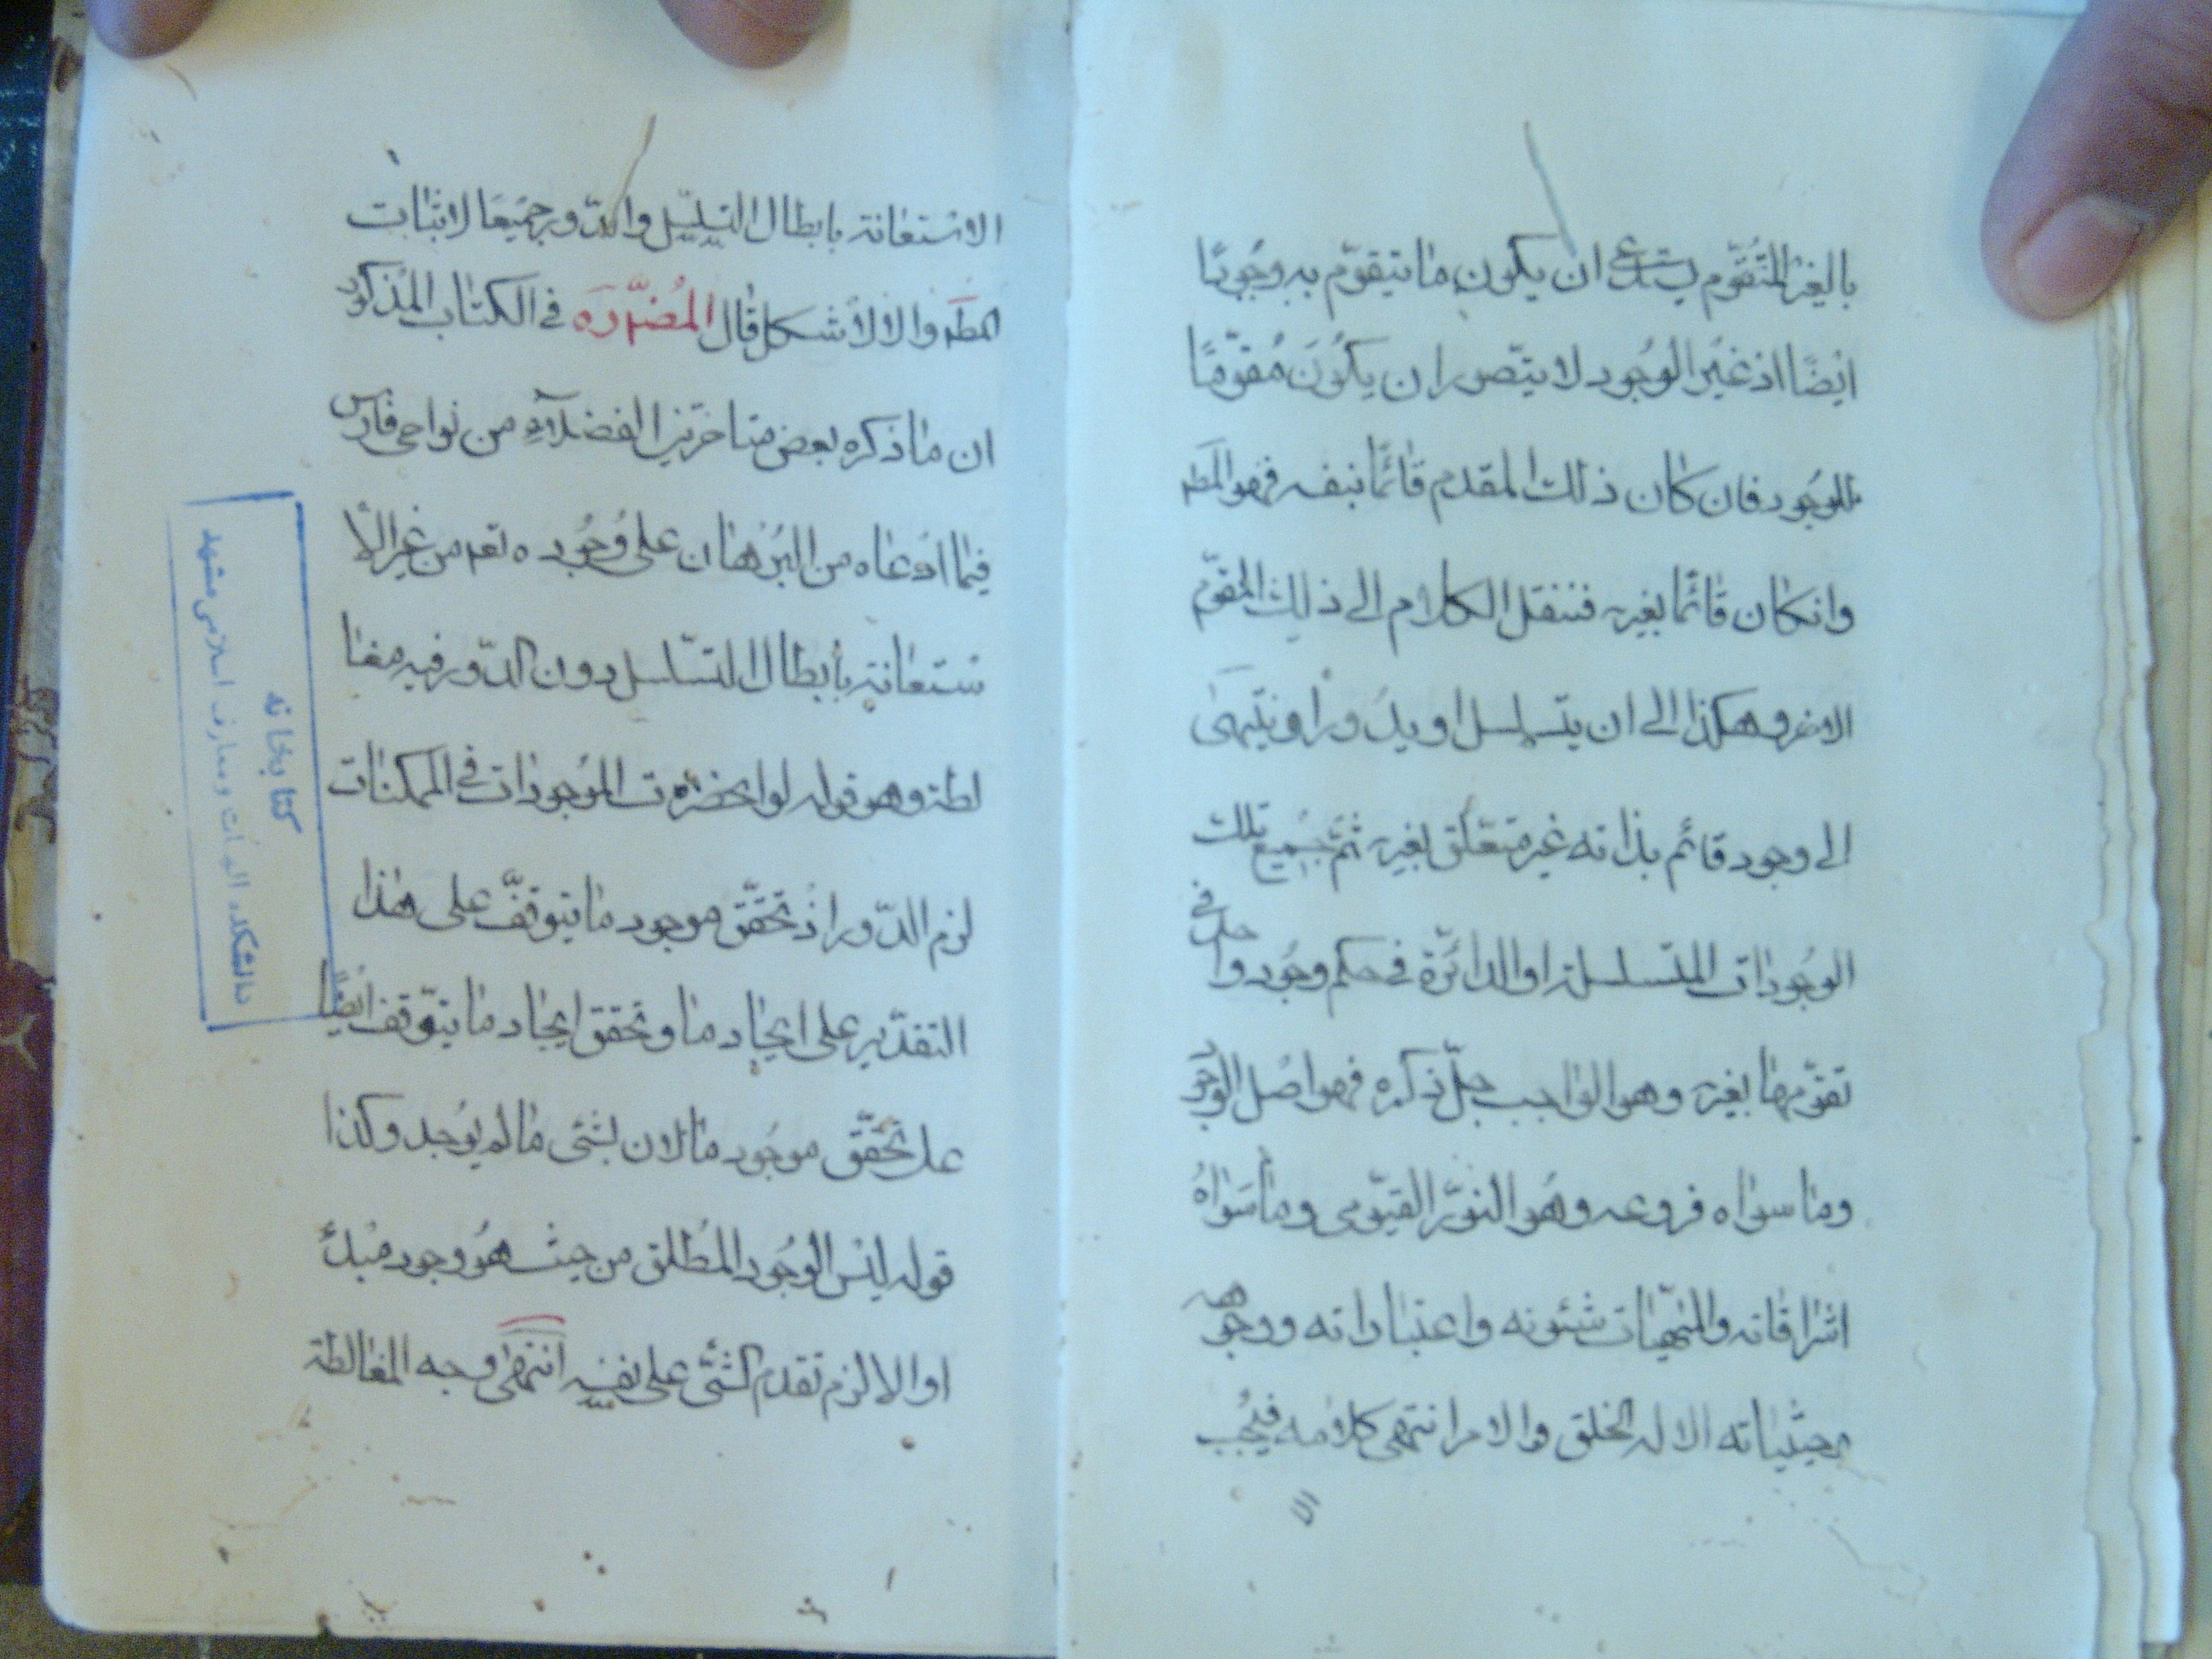 بالغير المتقوّم يستدعى ان يكون ما يتقوّم به وجودًا
ايضًا اذ غير الوجود لا يتصور ان يكون مقوّمًا
للوجود فان كان ذلك المقدم قائمًا بنفسه فهو المط
وانكان قائمًا بغيره فننقل الكلام الى ذلك المقوّم
الاخر وهكذا الى ان يتسلسل او يدور او ينتهى
الى وجود قائم بذاته غير متعلّق بغيره ثمّ جميع تلك
الوجودات المتسلسلة او الدائرة فى حكم وجود واحد فى
تقوّمها بغيره وهو الواجب جلّ ذكره فهو اصل الوجود
وما سواه فروعه وهو النوّر القيّومى وما سواه
اشراقاته والمهيّات شئونه واعتباراته ووجوهه
وحيثياته الا له الخلق والامر انتهى كلامه فيجب
الا
الاستعانة بابطال التسلسل والدّور جميعًا لاثبات
المط والا لاشكل قال المصدّره فى الكتاب المذكور
ان ما ذكره بعض متاخرين الفضلاء من نواحى فارس
فيما ادعاه من البرهان على وجوده تعم من غير الا
ستعانة بأبطال التسّلسل دون الدّور فيه مغا
لطة وهو قوله لو انحضرت الموجودات فى الممكنات
لزم الدّور اذ تحقّق موجود ما يتوقفّ على هذا
التقدّير على ايجاد ما وتحقق ايجاد ما يتوّقف ايضًا
على تحقّق موجود ما لان لشئى ما لم يوجد وكذا
قوله ليس الوجود المطلق من حيث هو وجود مبدأ
او الا لزم تقدم الشئى على نفسه انتهى وجه المغالطة
كتابخانه
دانشكده الهيات ومعارف اسلامى مشهد